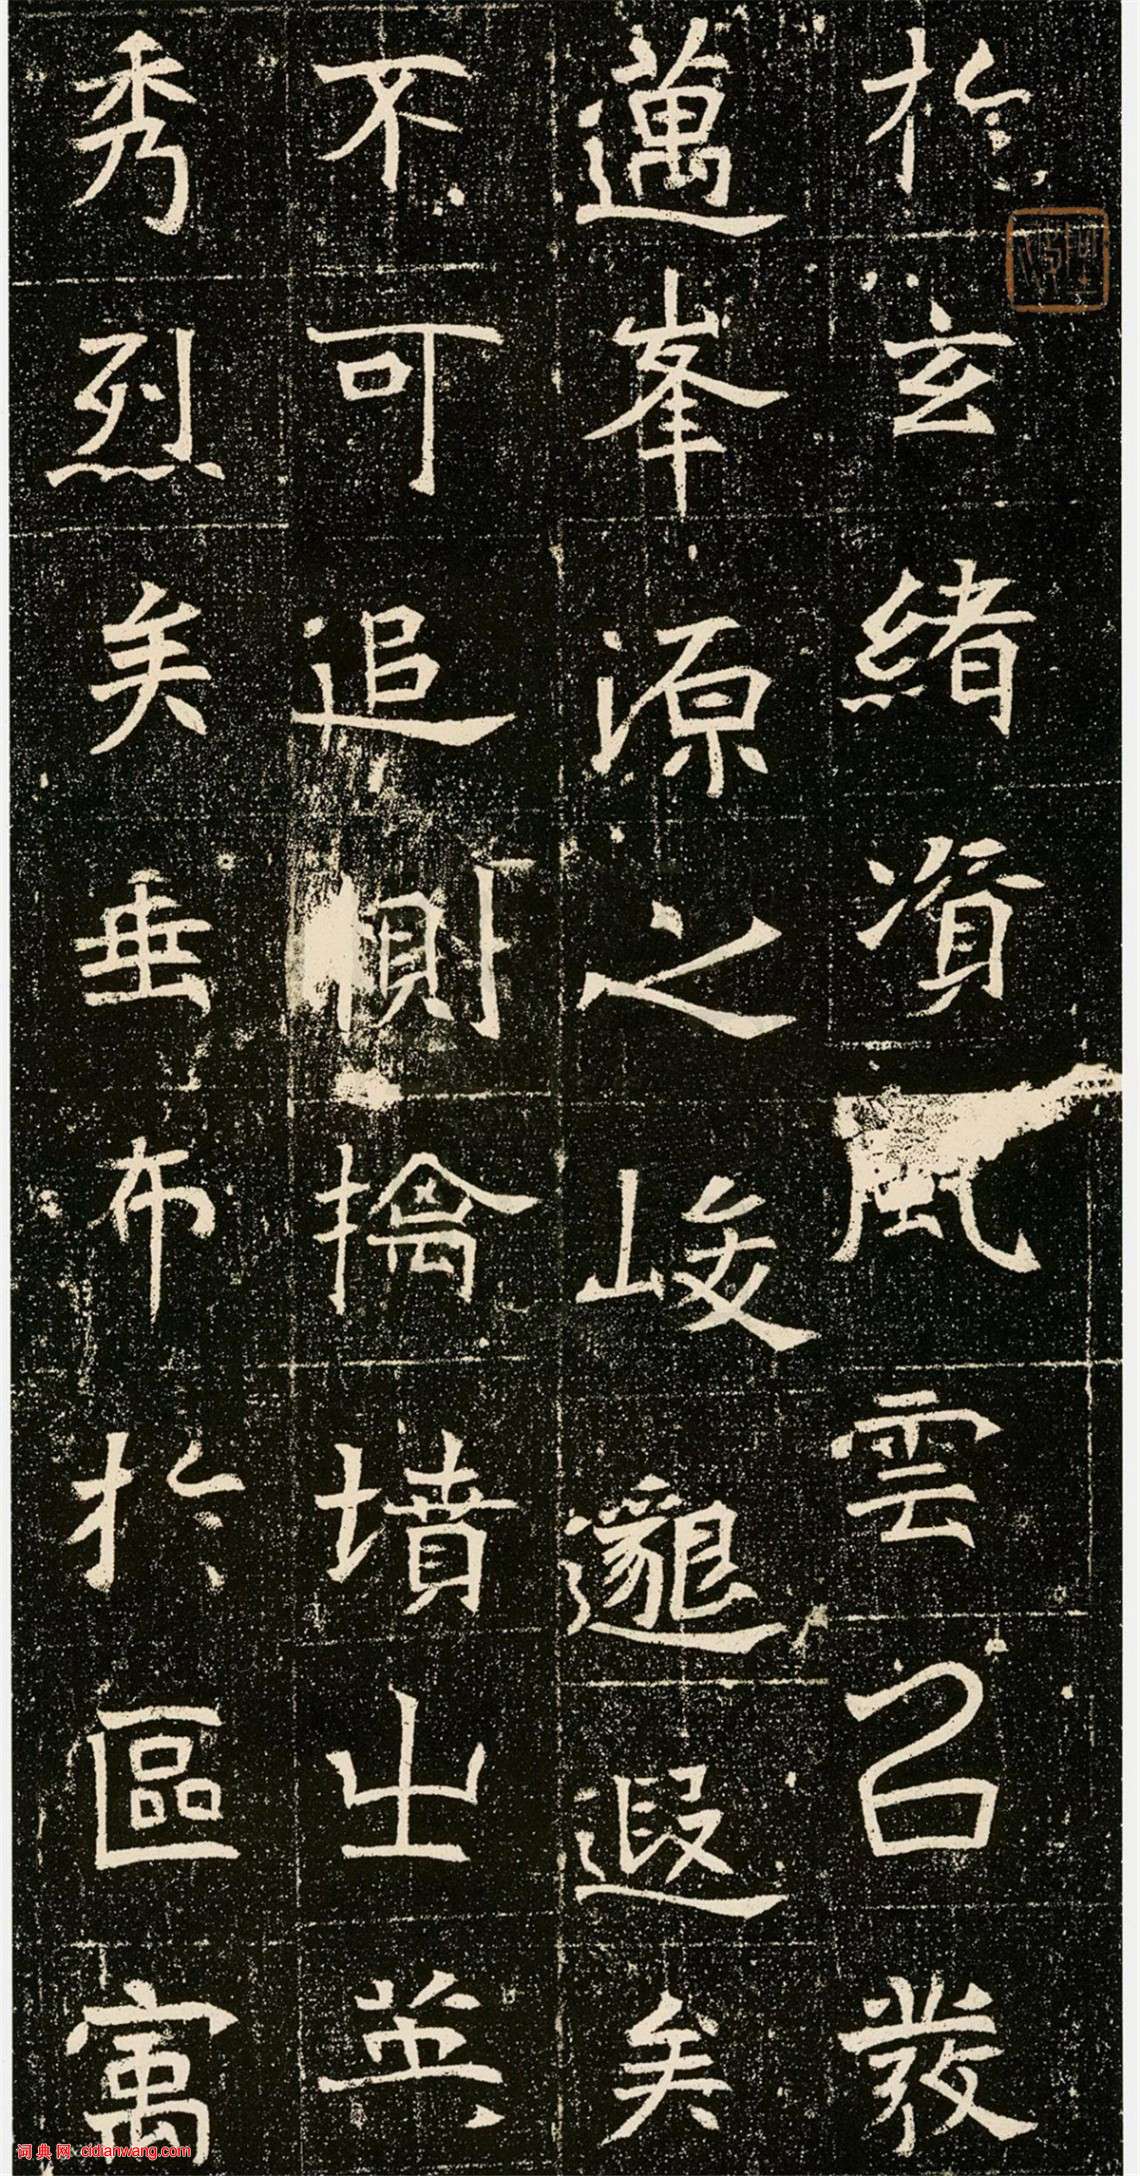 於玄緒資風雲㠯發
邁峯源之峻邈遐矣
不可追惻擒墳出英
秀烈矣垂布於區寓
词典网 cidianwang.com